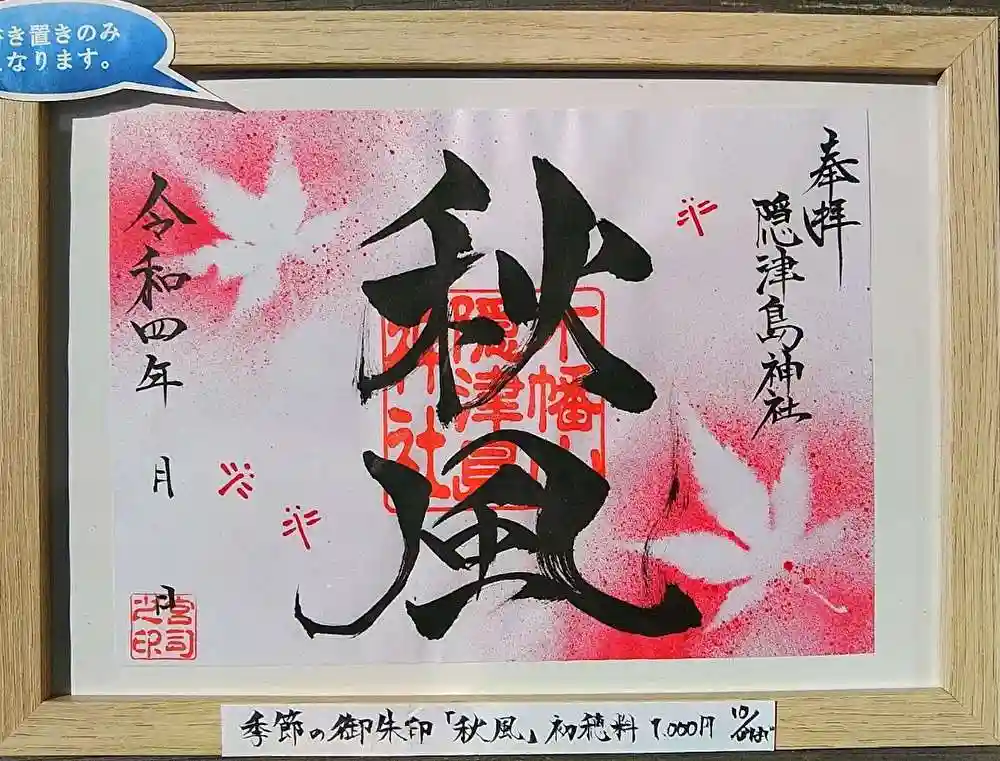 書き置きのみ
となります。
奉拝
隠津島神社
秋風
木幡山
隠津島
神社
令和四年 月 日
宮司
之印
季節の御朱印「秋風」初穂料 1,000円